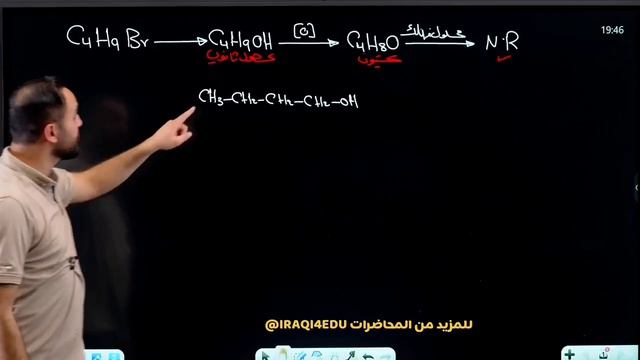 19:46
C4H9Br → C4H9OH [O] → C4H8O محلول فهلنك → N.R
كحول ثانوي كيتون
CH3-CH2-CH2-CH2-OH
للمزيد من المحاضرات IRAQI4EDU@